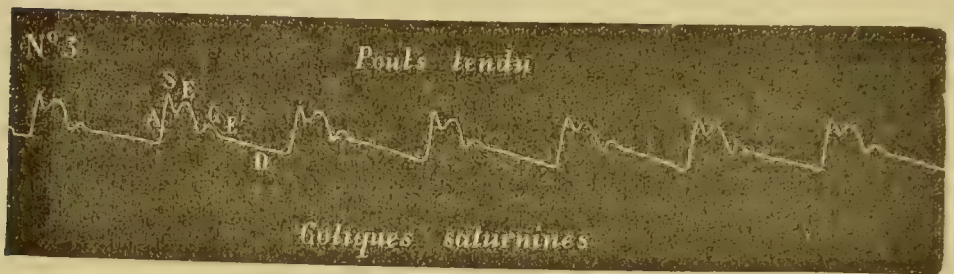 N° 3
Pouls tendu
S
E
A
G
E'
D
Coliques saturnines